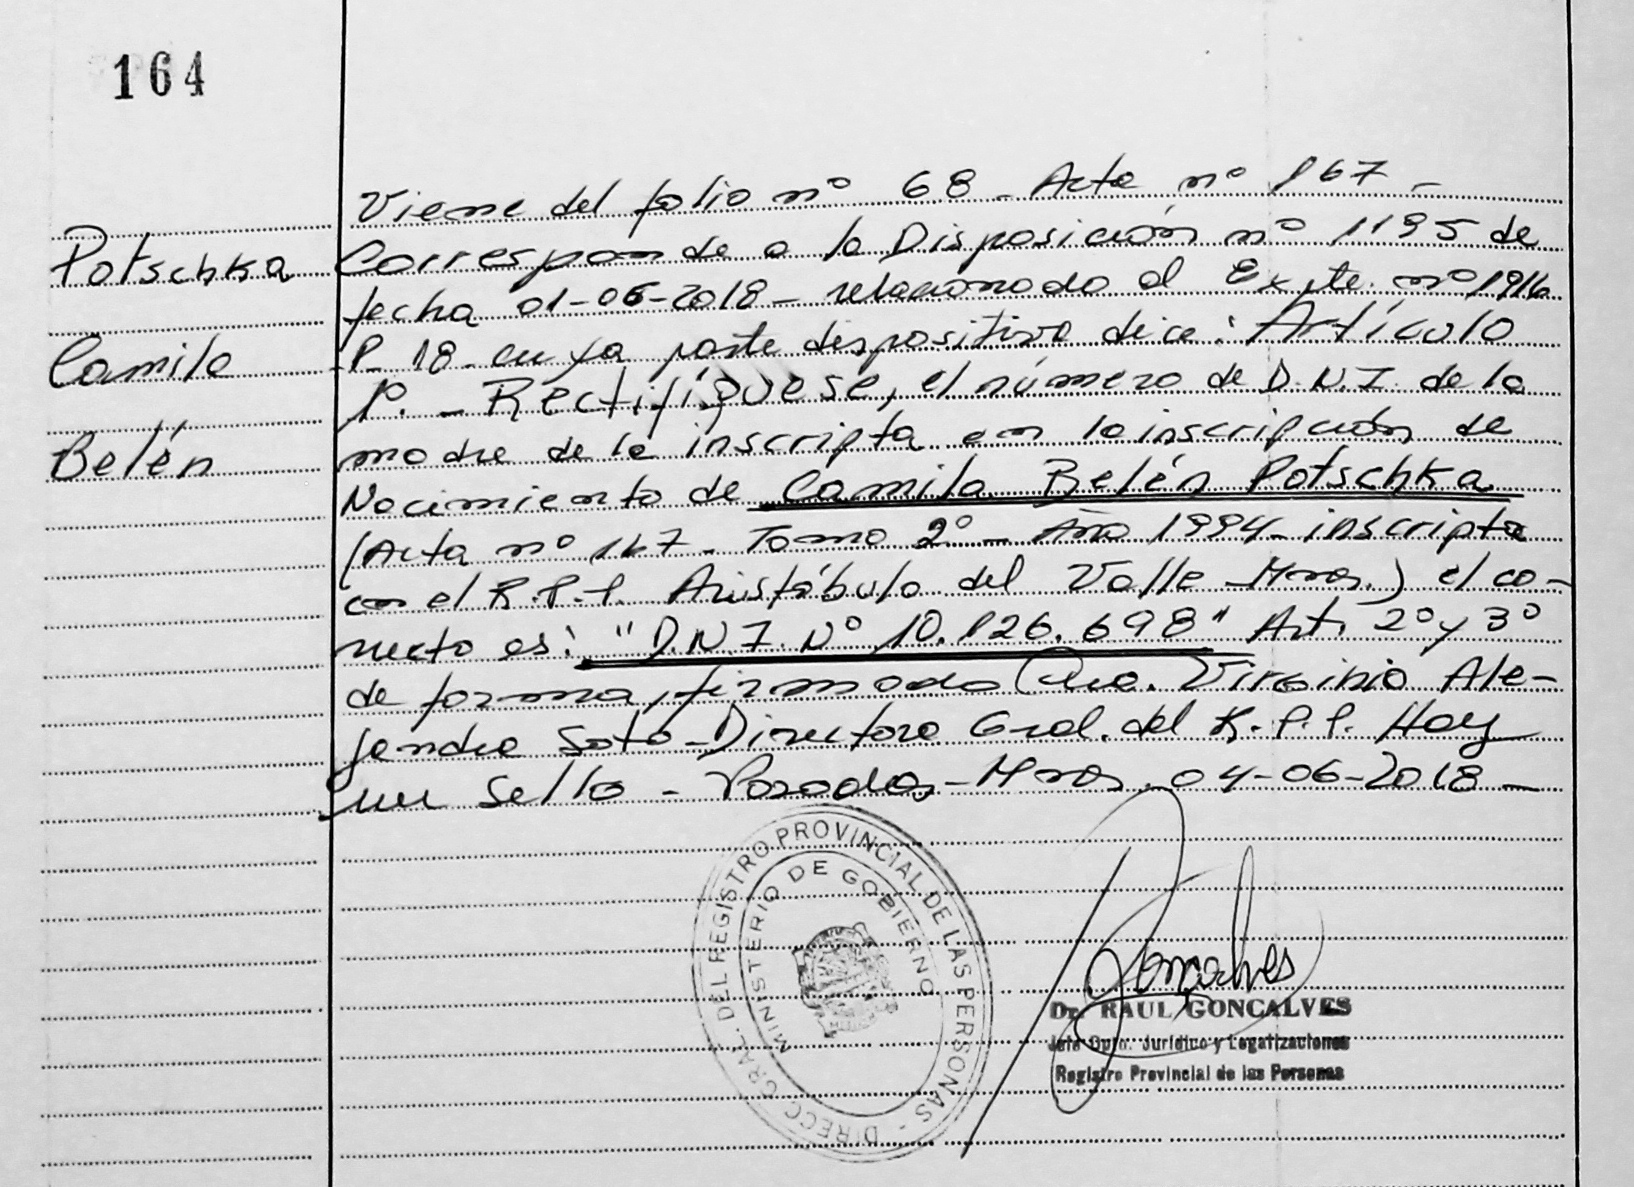 164
Viene del folio nº 68 - Acta nº 167 -
Potschka
Corresponde a la Disposición nº 1195 de
fecha 01-06-2018 - relacionado al Expte. nº 1916
Camila
P- 18 - cuya parte dispositiva dice: Artículo
1º. - Rectifíquese, el número de D.N.I. de la
Belén
madre de la inscripta en la inscripción de
Nacimiento de Camila Belén Potschka
(Acta nº 167 - Tomo 2º - Año 1994 - inscripta
en el R.P.P. Aristóbulo del Valle - Mnes.) el co-
rrecto es: "D.N.I. Nº 10.126.698" Art. 2º y 3º
de forma, firmado Virginia Ale-
jandra Soto - Directora Gral. del R.P.P. Hay
un Sello - Posadas - Mnes. 04-06-2018 -
DIREC. GRAL. DEL REGISTRO PROVINCIAL DE LAS PERSONAS -
MINISTERIO DE GOBIERNO
Goncalves
Dr. RAUL GONCALVES
Jefe Dpto. Jurídico y Legalizaciones
Registro Provincial de las Personas